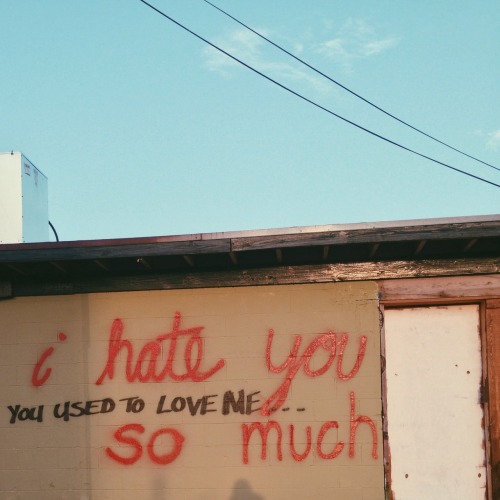 i hate you
YOU USED TO LOVE ME...
so much